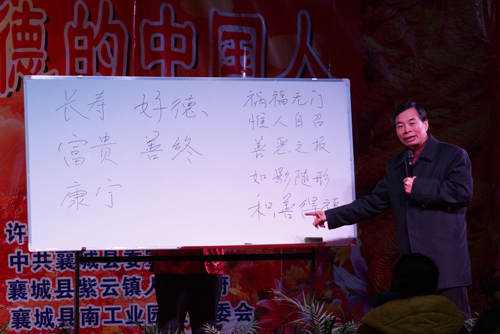 德的中国人
长寿 好德
富贵 善终
康宁
祸福无门
惟人自召
善恶之报
如影随形
积善得福
许
中共襄城县委
襄城县紫云镇人 府
襄城县南工业园 委会